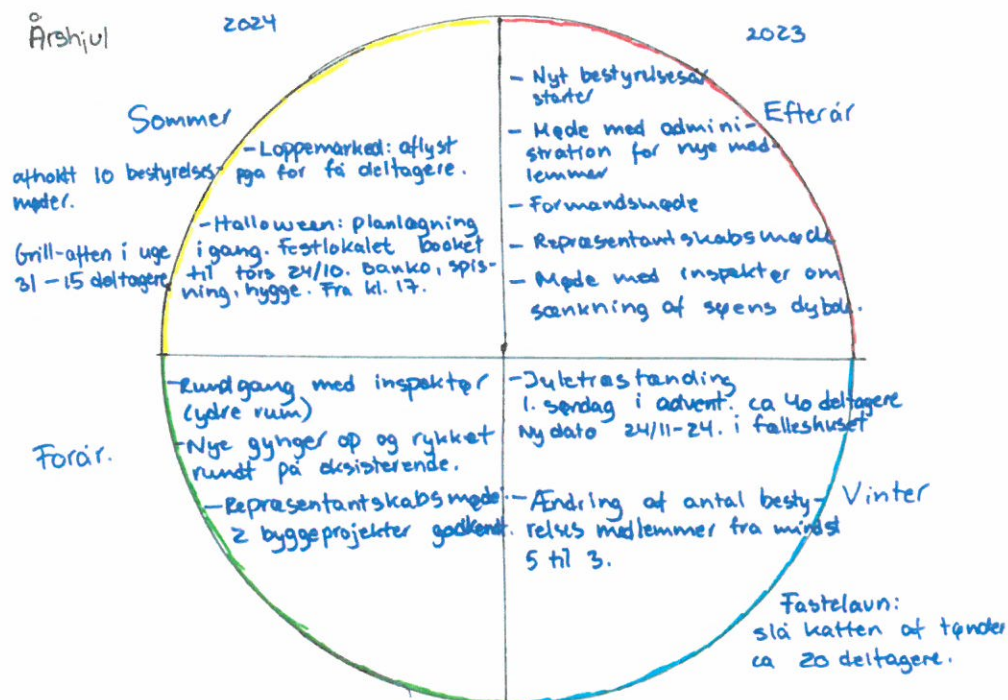 Årshjul
2024
2023
Sommer
afholdt 10 bestyrelses-
møder.
Grill-aften i uge
31 – 15 deltagere
- Loppemarked: aflyst
pga for få deltagere.
- Halloween: planlægning
igang. Festlokalet booket
til tors 24/10. Banko, spis-
ning, hygge. Fra kl. 17.
Efterår
- Nyt bestyrelsesår
starter
- Møde med admini-
stration for nye med-
lemmer
- Formandsmøde
- Repræsentantskabsmøde
- Møde med inspektør om
sænkning af søens dybde.
Forår.
- Rundgang med inspektør
(ydre rum)
- Nye gynger op og rykket
rundt på eksisterende.
- Repræsentantskabsmøde:
2 byggeprojekter godkendt.
- Juletræstænding
1. søndag i advent. ca 40 deltagere
Ny dato 24/11-24. i fælleshuset
- Ændring af antal besty-
relses medlemmer fra mindst
5 til 3.
Vinter
Fastelavn:
slå katten af tønden
ca 20 deltagere.